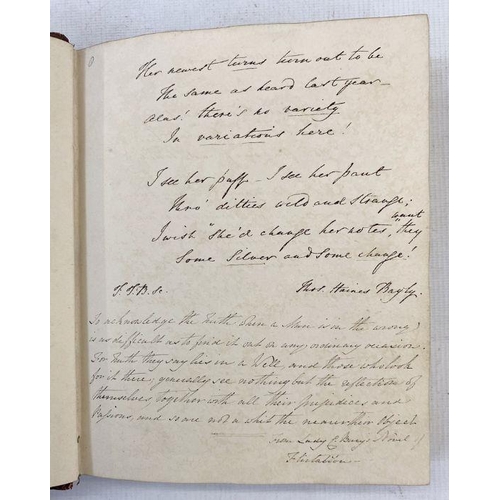 Her newest turns turn out to be
The same as heard last year—
Alas! there's no variety
In variations here!
I see her puff – I see her pant
Thro' ditties wild and strange;
I wish she'd change her notes, they want
Some Silver and some change!
Thos. Haines Bayly.
To acknowledge the Truth when a Man is in the wrong
is as difficult as to find it out on any ordinary occasion.
For Truth they say lies in a Well, and those who look
for it there, generally see nothing but the reflection of
themselves, together with all their Prejudices and
Passions, and some not a whit the nearer their Object
From Lady C Bury's Novel
Flirtation